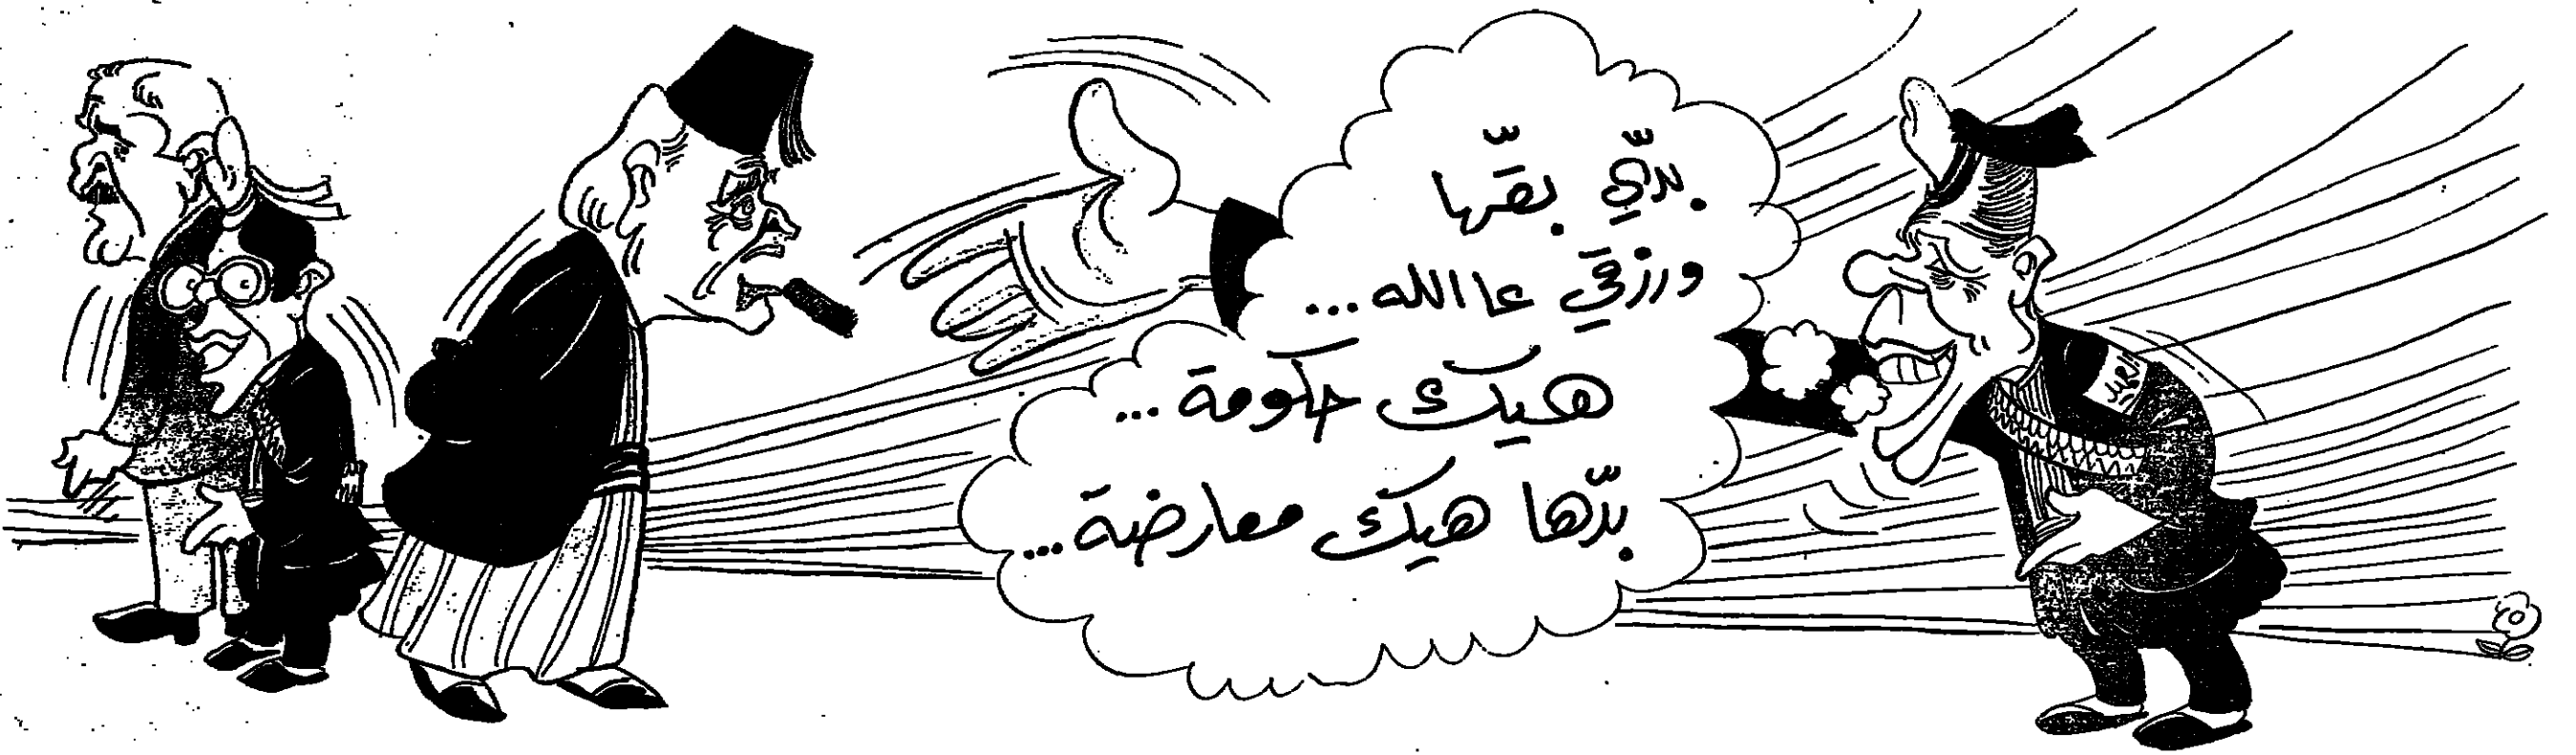 بدّي بقّها
ورزقي عا الله...
هيك حكومة...
بدّها هيك معارضة...